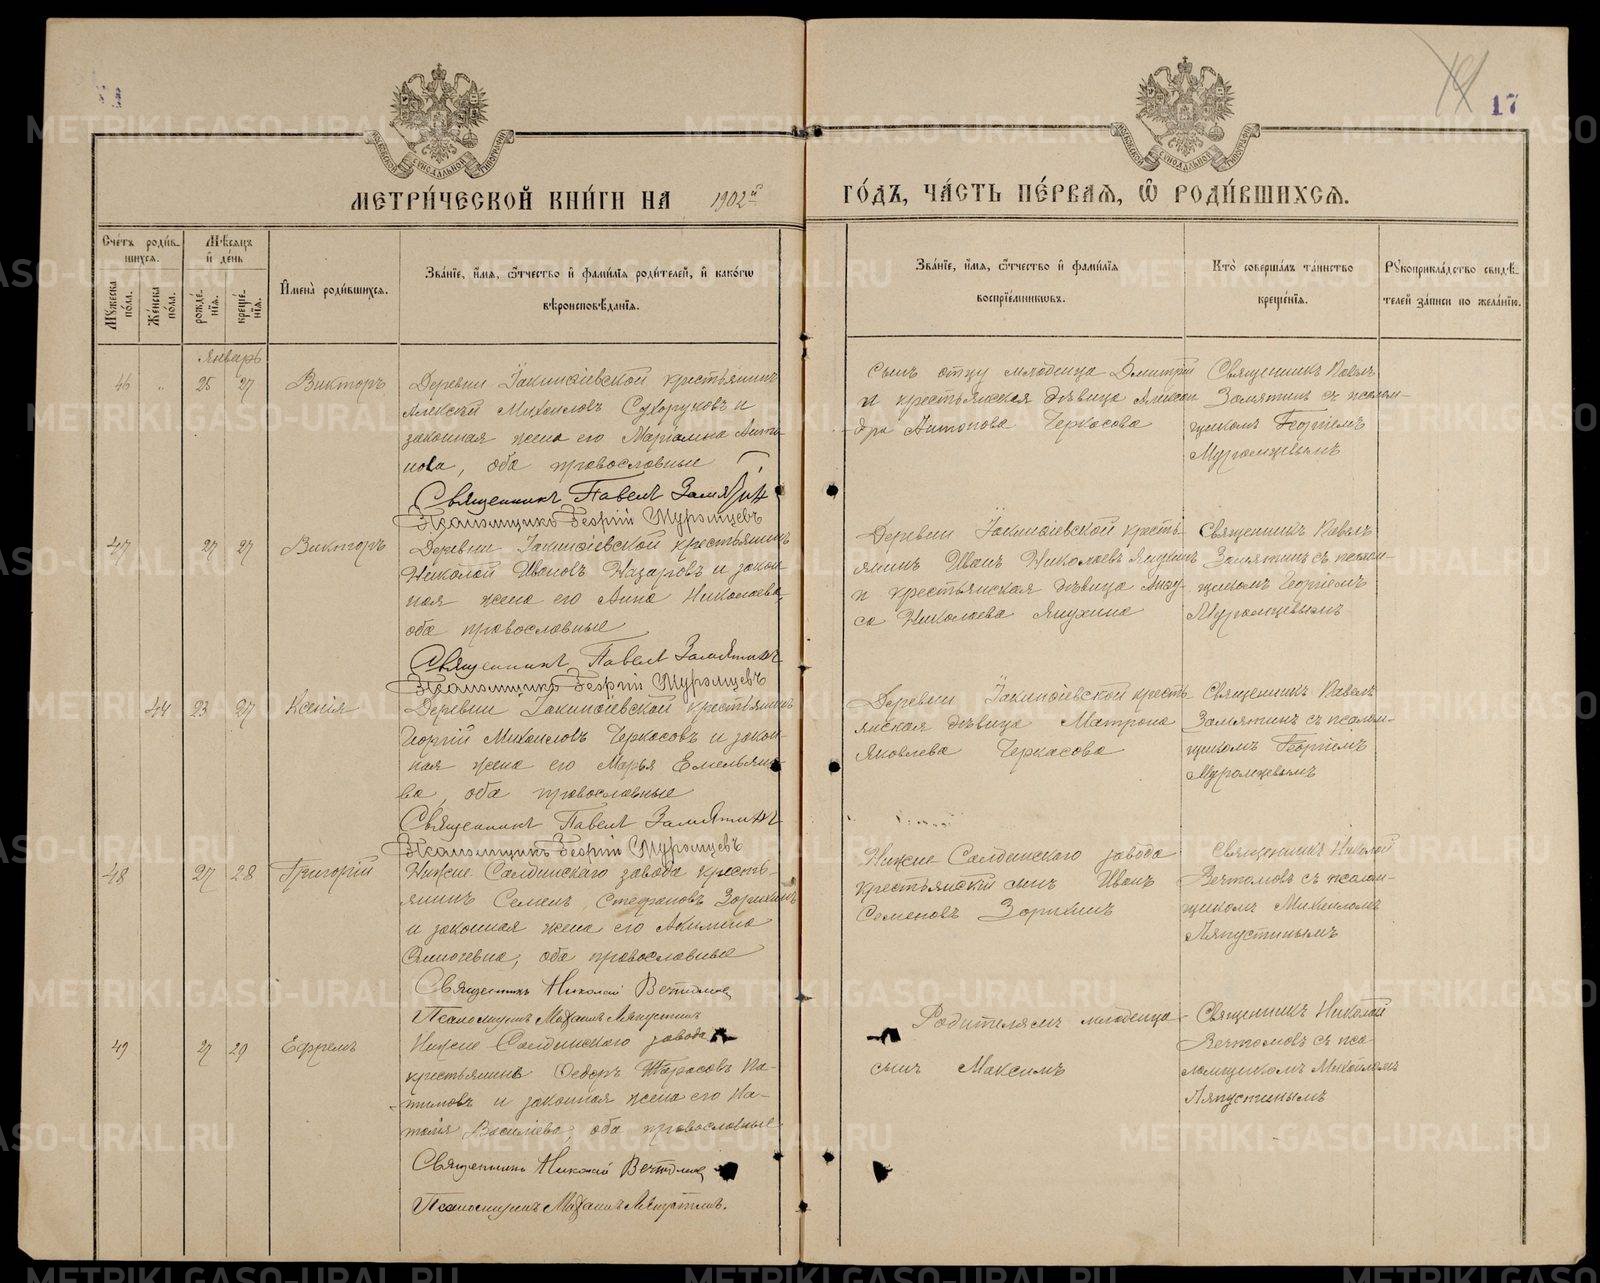 17
МОСКОВСКОЙ СѴНОДАЛЬНОЙ ТИПОГРАФІИ
МОСКОВСКОЙ СѴНОДАЛЬНОЙ ТИПОГРАФІИ
МЕТРИ́ЧЕСКОЙ КНИ́ГИ НА 1902й ГО́ДЪ, ЧА́СТЬ ПЕ́РВАѦ, Ѽ РОДИ́ВШИХСѦ.
Сче́тъ роди́вшихсѧ.
Мѣ́сѧцъ и҆ де́нь
Мꙋ́жеска по́ла.
Же́нска по́ла.
рожде́нїѧ.
креще́нїѧ.
И҆мена̀ роди́вшихсѧ.
Зва́нїе, и҆́мѧ, ѻ҆́тчество и҆ фами́лїѧ роди́телей, и҆ како́гѡ
вѣроисповѣ́данїѧ.
Зва́нїе, и҆́мѧ, ѻ҆́тчество и҆ фами́лїѧ
воспрїе́мникѡвъ.
Кто̀ соверша́лъ та́инство
креще́нїѧ.
Рꙋкоприкла́дство свидѣ́телей за́писи по жела́нїю.
Январь
46 " 25 27 Викторъ
Деревни Іакинѳіевской крестьянинъ
Алексѣй Михаиловъ Сухоруковъ и
законная жена его Марiамна Анто-
нова, оба православные
Священникъ Павелъ Замятин
Псаломщикъ Георгій Муромцевъ
сынъ отцу младенца Дмитрій
и крестьянская дѣвица Алексан
дра Антонова Черкасова
Священникъ Павелъ
Замятинъ съ псалом-
щикомъ Георгіемъ
Муромцевымъ
47 27 27 Викторъ
Деревни Іакинѳіевской крестьянинъ
Николай Ивановъ Назаровъ и закон-
ная жена его Анна Николаева,
оба православные
Священникъ Павелъ Замятинъ
Псаломщикъ Георгій Муромцевъ
Деревни Іакинѳіевской кресть-
янинъ Иванъ Николаевъ Янухинъ
и крестьянская дѣвица Анфу-
са Николаева Янухина
Священникъ Павелъ
Замятинъ съ псалом-
щикомъ Георгіемъ
Муромцевымъ
44 23 27 Ксенія
Деревни Іакинѳіевской крестьянинъ
Георгій Михаиловъ Черкасовъ и закон-
ная жена его Марья Емельяно-
ва, оба православные
Священникъ Павелъ Замятинъ
Псаломщикъ Георгій Муромцевъ
Деревни Іакинѳіевской кресть
янская дѣвица Матрона
Яковлева Черкасова
Священникъ Павелъ
Замятинъ съ псалом-
щикомъ Георгіемъ
Муромцевымъ
48 27 28 Григорій
Нижне Салдинскаго завода кресть-
янинъ Семенъ Стефановъ Зорихинъ
и законная жена его Акилина
оба православные
Священникъ Николай Вечтомов
Псаломщикъ Михаилъ Ляпустинъ
Нижне Салдинскаго завода
крестьянскій сынъ Иванъ
Семеновъ Зорихинъ
Священникъ Николай
Вечтомовъ съ псалом-
щикомъ Михаиломъ
Ляпустинымъ
49 27 29 Ефремъ
Нижне Салдинскаго завода
крестьянинъ Ѳедоръ Тарасовъ Па-
тимовъ и законная жена его На-
талія Василіева, оба православные
Священникъ Николай Вечтомов
Псаломщикъ Михаилъ Ляпустинъ.
Родителямъ младенца
сынъ Максимъ
Священникъ Николай
Вечтомовъ съ пса-
ломщикомъ Михаиломъ
Ляпустинымъ
METRIKI.GASO-URAL.RU